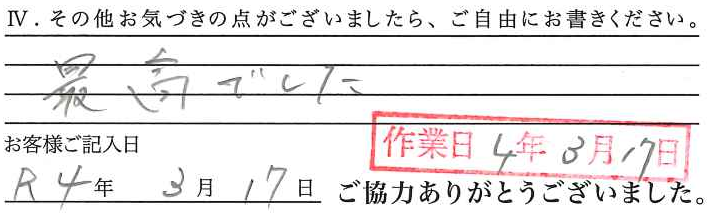 Ⅳ．その他お気づきの点がございましたら、ご自由にお書きください。
最高でした
お客様ご記入日
作業日 4年 3月17日
R4年 3月 17日 ご協力ありがとうございました。